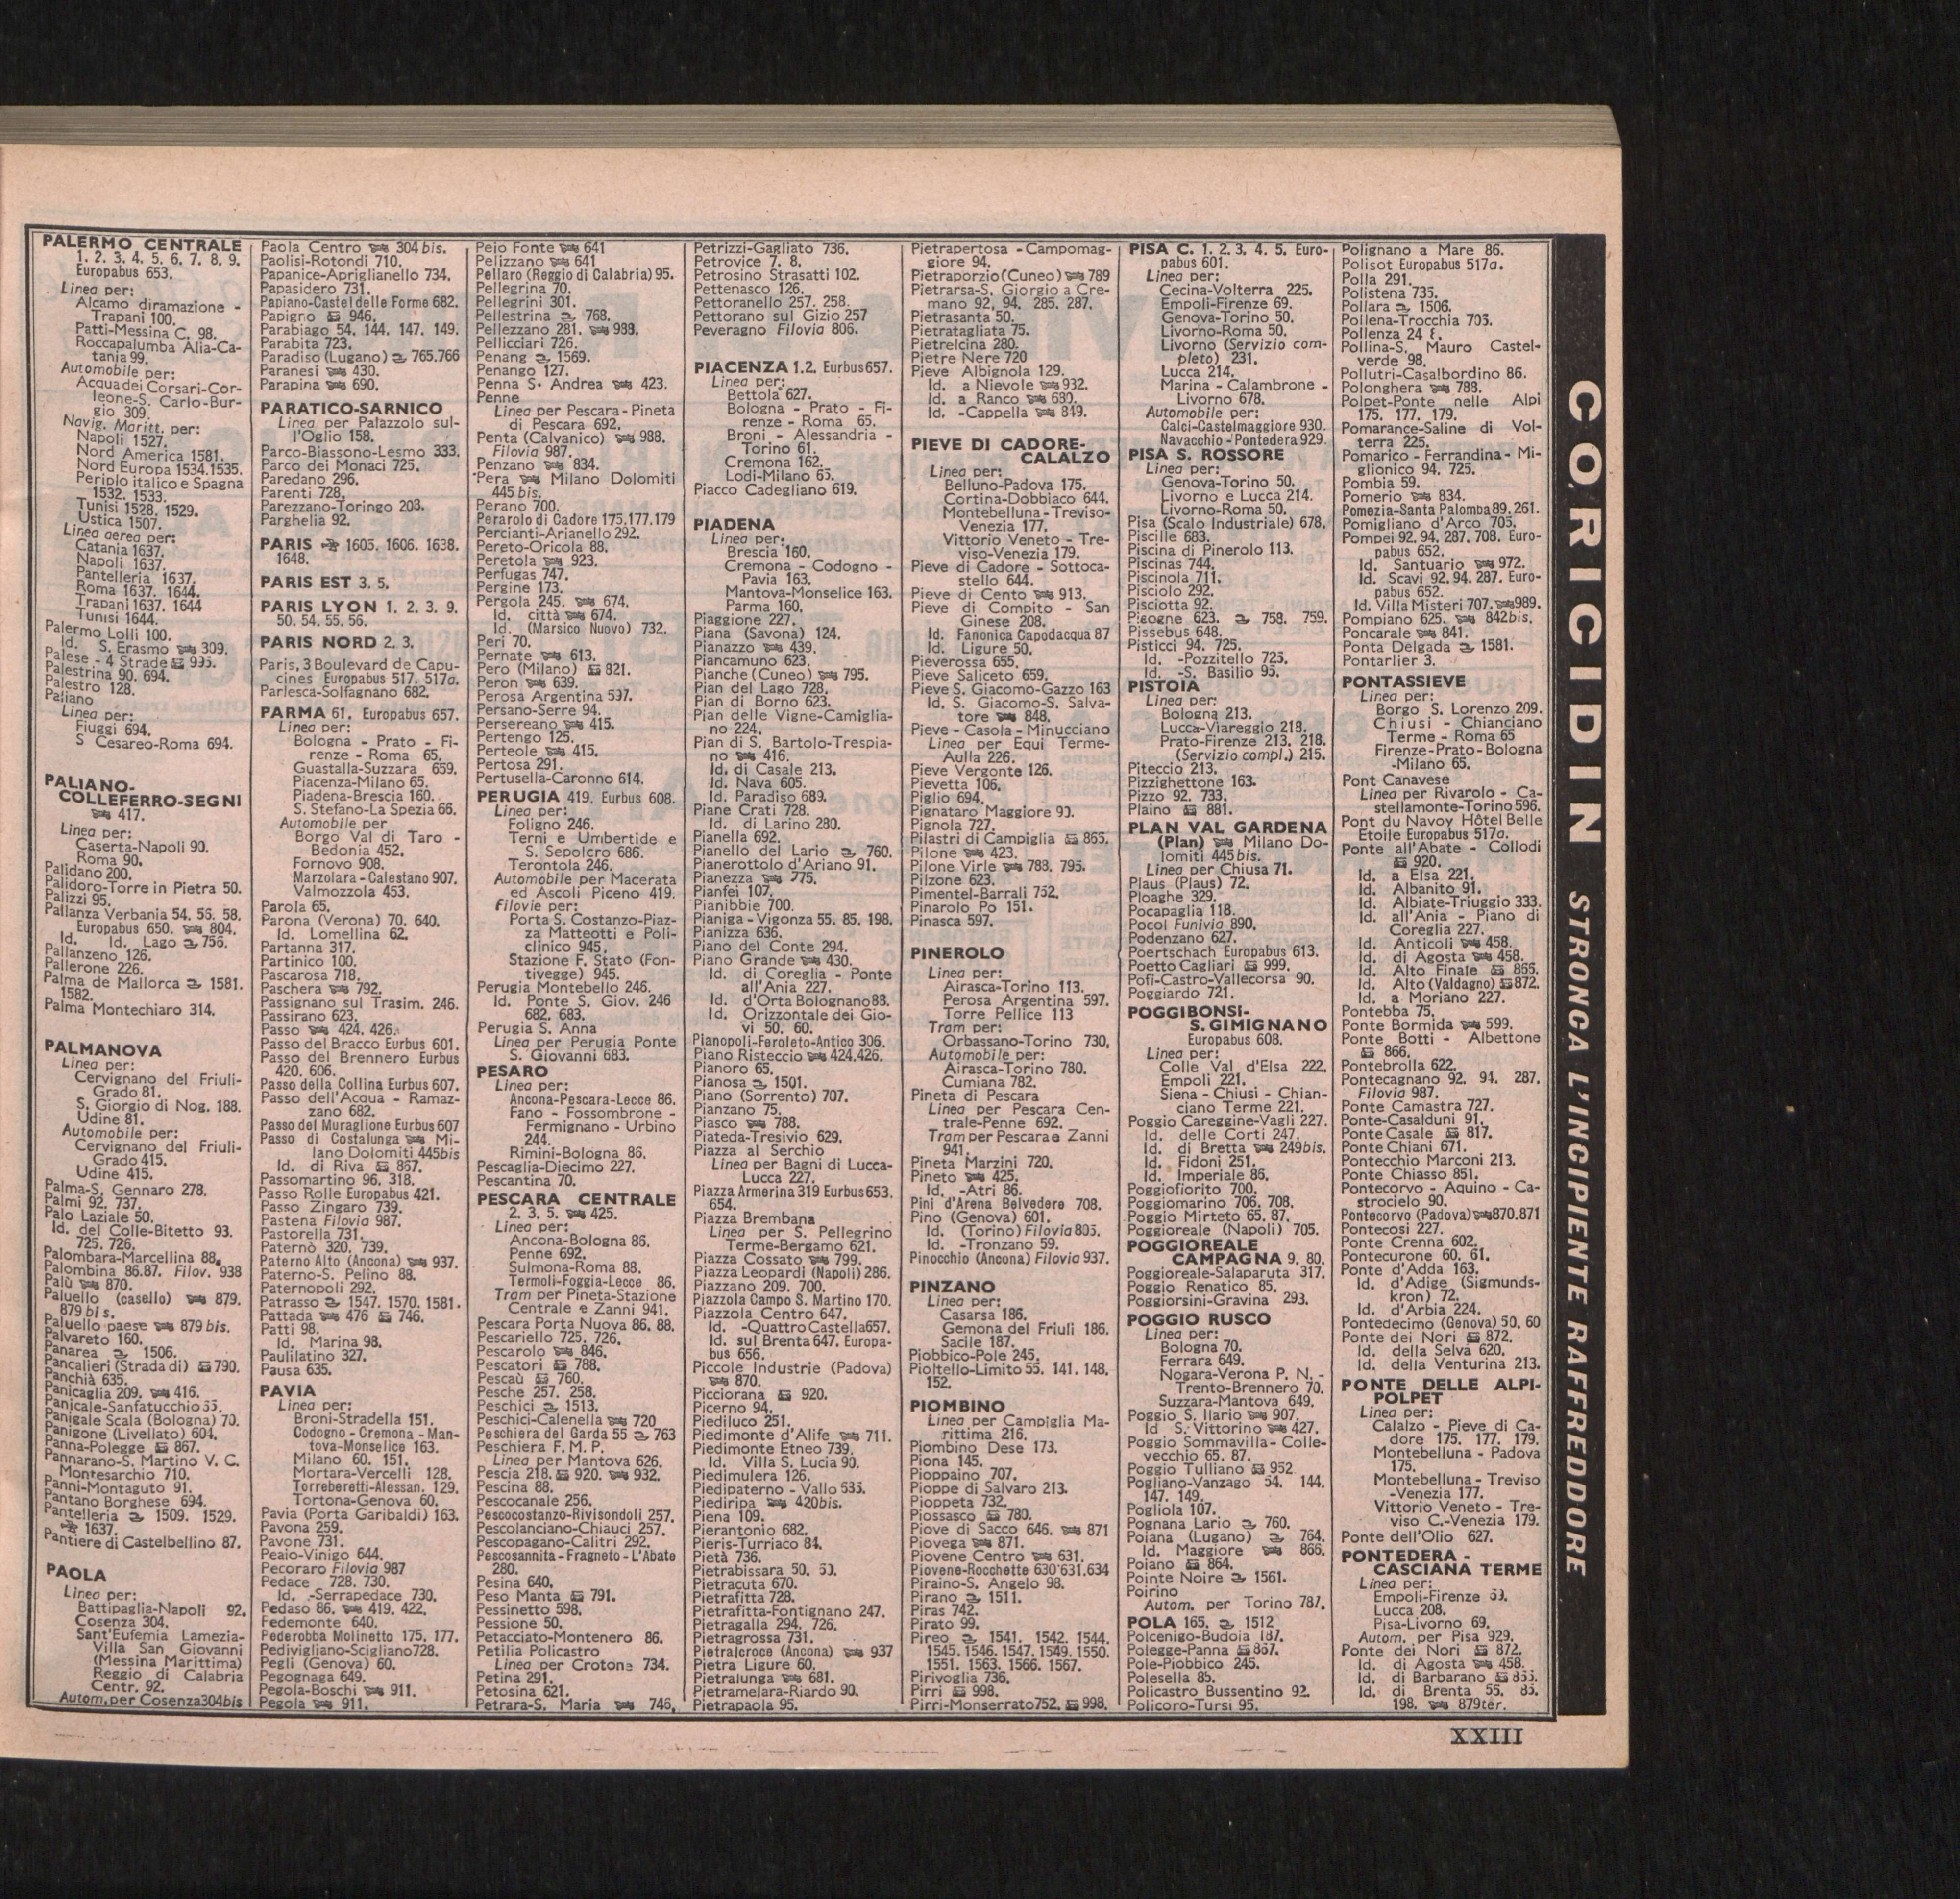 PALERMO CENTRALE
1. 2. 3. 4. 5. 6. 7. 8. 9.
Europabus 653.
Linea per:
Alcamo diramazione -
Trapani 100.
Patti-Messina C. 98.
Roccapalumba Alia-Ca-
tania 99.
Automobile per:
Acqua dei Corsari-Cor-
leone-S. Carlo-Bur-
gio 309.
Navig. Maritt. per:
Napoli 1527.
Nord America 1581.
Nord Europa 1534.1535.
Periplo italico e Spagna
1532. 1533.
Tunisi 1528. 1529.
Ustica 1507.
Linea aerea per:
Catania 1637.
Napoli 1637.
Pantelleria 1637.
Roma 1637. 1644.
Trapani 1637. 1644
Tunisi 1644.
Palermo Lolli 100.
Id. S. Erasmo 309.
Palese - 4 Strade 995.
Palestrina 90. 694.
Palestro 128.
Paliano
Linea per:
Fiuggi 694.
S Cesareo-Roma 694.
PALIANO-
COLLEFERRO-SEGNI
417.
Linea per:
Caserta-Napoli 90.
Roma 90.
Palidano 200.
Palidoro-Torre in Pietra 50.
Palizzi 95.
Pallanza Verbania 54. 56. 58.
Europabus 650. 804.
Id. Id. Lago 756.
Pallanzeno 126.
Pallerone 226.
Palma de Mallorca 1581.
1582.
Palma Montechiaro 314.
PALMANOVA
Linea per:
Cervignano del Friuli-
Grado 81.
S. Giorgio di Nog. 188.
Udine 81.
Automobile per:
Cervignano del Friuli-
Grado 415.
Udine 415.
Palma-S. Gennaro 278.
Palmi 92. 737.
Palo Laziale 50.
Id. del Colle-Bitetto 93.
725. 726.
Palombara-Marcellina 88.
Palombina 86.87. Filov. 938
Palù 870.
Paluello (casello) 879.
879 bis.
Paluello paese 879 bis.
Palvareto 160.
Panarea 1506.
Pancalieri (Strada di) 790.
Panchià 635.
Panicaglia 209. 416.
Panicale-Sanfatucchio 65.
Panigale Scala (Bologna) 70.
Panigone (Livellato) 604.
Panna-Polegge 867.
Pannarano-S. Martino V. C.
Montesarchio 710.
Panni-Montaguto 91.
Pantano Borghese 694.
Pantelleria 1509. 1529.
1637.
Pantiere di Castelbellino 87.
PAOLA
Linea per:
Battipaglia-Napoli 92.
Cosenza 304.
Sant'Eufemia Lamezia-
Villa San Giovanni
(Messina Marittima)
Reggio di Calabria
Centr. 92.
Autom. per Cosenza 304 bis
Paola Centro 304 bis.
Paolisi-Rotondi 710.
Papanice-Apriglianello 734.
Papasidero 731.
Papiano-Castel delle Forme 682.
Papigno 946.
Parabiago 54. 144. 147. 149.
Parabita 723.
Paradiso (Lugano) 765.766
Paranesi 430.
Parapina 690.
PARATICO-SARNICO
Linea per Palazzolo sul-
l'Oglio 158.
Parco-Biassono-Lesmo 333.
Parco dei Monaci 725.
Paredano 296.
Parenti 728.
Parezzano-Toringo 208.
Parghelia 92.
PARIS 1605. 1606. 1638.
1648.
PARIS EST 3. 5.
PARIS LYON 1. 2. 3. 9.
50. 54. 55. 56.
PARIS NORD 2. 3.
Paris, 3 Boulevard de Capu-
cines Europabus 517. 517a.
Parlesca-Solfagnano 682.
PARMA 61. Europabus 657.
Linea per:
Bologna - Prato - Fi-
renze - Roma 65.
Guastalla-Suzzara 659.
Piacenza-Milano 65.
Piadena-Brescia 160.
S. Stefano-La Spezia 66.
Automobile per
Borgo Val di Taro -
Bedonia 452.
Fornovo 908.
Marzolara - Calestano 907.
Valmozzola 453.
Parola 65.
Parona (Verona) 70. 640.
Id. Lomellina 62.
Partanna 317.
Partinico 100.
Pascarosa 718.
Paschera 792.
Passignano sul Trasim. 246.
Passirano 623.
Passo 424. 426.
Passo del Bracco Eurbus 601.
Passo del Brennero Eurbus
420. 606.
Passo della Collina Eurbus 607.
Passo dell'Acqua - Ramaz-
zano 682.
Passo del Muraglione Eurbus 607
Passo di Costalunga Mi-
lano Dolomiti 445bis
Id. di Riva 867.
Passomartino 96. 318.
Passo Rolle Europabus 421.
Passo Zingaro 739.
Pastena Filovia 987.
Pastorella 731.
Paternò 320. 739.
Paterno Alto (Ancona) 937.
Paterno-S. Pelino 88.
Paternopoli 292.
Patrasso 1547. 1570. 1581.
Pattada 476 746.
Patti 98.
Id. Marina 98.
Paulilatino 327.
Pausa 635.
PAVIA
Linea per:
Broni-Stradella 151.
Codogno - Cremona - Man-
tova-Monselice 163.
Milano 60. 151.
Mortara-Vercelli 128.
Torreberetti-Alessan. 129.
Tortona-Genova 60.
Pavia (Porta Garibaldi) 163.
Pavona 259.
Pavone 731.
Peaio-Vinigo 644.
Pecoraro Filovia 987
Pedace 728. 730.
Id. -Serrapedace 730.
Pedaso 86. 419. 422.
Pedemonte 640.
Pederobba Molinetto 175. 177.
Pedivigliano-Scigliano 728.
Pegli (Genova) 60.
Pegognaga 649.
Pegola-Boschi 911.
Pegola 911.
Pejo Fonte 641
Pelizzano 641
Pellaro (Reggio di Calabria) 95.
Pellegrina 70.
Pellegrini 301.
Pellestrina 768.
Pellezzano 281. 988.
Pellicciari 726.
Penang 1569.
Penango 127.
Penna S. Andrea 423.
Penne
Linea per Pescara - Pineta
di Pescara 692.
Penta (Calvanico) 988.
Filovia 987.
Penzano 834.
Pera Milano Dolomiti
445 bis.
Perano 700.
Perarolo di Cadore 175.177.179
Percianti-Arianello 292.
Pereto-Oricola 88.
Peretola 923.
Perfugas 747.
Pergine 173.
Pergola 245. 674.
Id. città 674.
Id. (Marsico Nuovo) 732.
Peri 70.
Pernate 613.
Pero (Milano) 821.
Peron 639.
Perosa Argentina 597.
Persano-Serre 94.
Persereano 415.
Pertengo 125.
Perteole 415.
Pertosa 291.
Pertusella-Caronno 614.
PERUGIA 419. Eurbus 608.
Linea per:
Foligno 246.
Terni e Umbertide e
S. Sepolcro 686.
Terontola 246.
Automobile per Macerata
ed Ascoli Piceno 419.
Filovie per:
Porta S. Costanzo-Piaz-
za Matteotti e Poli-
clinico 945.
Stazione F. Stato (Fon-
tivegge) 945.
Perugia Montebello 246.
Id. Ponte S. Giov. 246
682. 683.
Perugia S. Anna
Linea per Perugia Ponte
S. Giovanni 683.
PESARO
Linea per:
Ancona-Pescara-Lecce 86.
Fano - Fossombrone -
Fermignano - Urbino
244.
Rimini-Bologna 86.
Pescaglia-Diecimo 227.
Pescantina 70.
PESCARA CENTRALE
2. 3. 5. 425.
Linea per:
Ancona-Bologna 86.
Penne 692.
Sulmona-Roma 88.
Termoli-Foggia-Lecce 86.
Tram per Pineta-Stazione
Centrale e Zanni 941.
Pescara Porta Nuova 86. 88.
Pescariello 725. 726.
Pescarolo 846.
Pescatori 788.
Pescaù 760.
Pesche 257. 258.
Peschici 1513.
Peschici-Calenella 720
Peschiera del Garda 55 763
Peschiera F. M. P.
Linea per Mantova 626.
Pescia 218. 920. 932.
Pescina 88.
Pescocanale 256.
Pescocostanzo-Rivisondoli 257.
Pescolanciano-Chiauci 257.
Pescopagano-Calitri 292.
Pescosannita - Fragneto - L'Abate
280.
Pesina 640.
Peso Manta 791.
Pessinetto 598.
Pessione 50.
Petacciato-Montenero 86.
Petilia Policastro
Linea per Crotone 734.
Petina 291.
Petosina 621.
Petrara-S. Maria 746.
Petrizzi-Gagliato 736.
Petrovice 7. 8.
Petrosino Strasatti 102.
Pettenasco 126.
Pettoranello 257. 258.
Pettorano sul Gizio 257
Peveragno Filovia 806.
PIACENZA 1.2. Eurbus 657.
Linea per:
Bettola 627.
Bologna - Prato - Fi-
renze - Roma 65.
Broni - Alessandria -
Torino 61.
Cremona 162.
Lodi-Milano 65.
Piacco Cadegliano 619.
PIADENA
Linea per:
Brescia 160.
Cremona - Codogno -
Pavia 163.
Mantova-Monselice 163.
Parma 160.
Piaggione 227.
Piana (Savona) 124.
Pianazzo 439.
Piancamuno 623.
Pianche (Cuneo) 795.
Pian del Lago 728.
Pian di Borno 623.
Pian delle Vigne-Camiglia-
no 224.
Pian di S. Bartolo-Trespia-
no 416.
Id. di Casale 213.
Id. Nava 605.
Id. Paradiso 689.
Piane Crati 728.
Id. di Larino 280.
Pianella 692.
Pianello del Lario 760.
Pianerottolo d'Ariano 91.
Pianezza 775.
Pianfei 107.
Pianibbie 700.
Pianiga - Vigonza 55. 85. 198.
Pianizza 636.
Piano del Conte 294.
Piano Grande 430.
Id. di Coreglia - Ponte
all'Ania 227.
Id. d'Orta Bolognano 88.
Id. Orizzontale dei Gio-
vi 50. 60.
Pianopoli-Feroleto-Antico 306.
Piano Risteccio 424.426.
Pianoro 65.
Pianosa 1501.
Piano (Sorrento) 707.
Pianzano 75.
Piasco 788.
Piateda-Tresivio 629.
Piazza al Serchio
Linea per Bagni di Lucca-
Lucca 227.
Piazza Armerina 319 Eurbus 653.
654.
Piazza Brembana
Linea per S. Pellegrino
Terme-Bergamo 621.
Piazza Cossato 799.
Piazza Leopardi (Napoli) 286.
Piazzano 209. 700.
Piazzola Campo S. Martino 170.
Piazzola Centro 647.
Id. -Quattro Castella 657.
Id. sul Brenta 647. Europa-
bus 656.
Piccole Industrie (Padova)
870.
Picciorana 920.
Picerno 94.
Piediluco 251.
Piedimonte d'Alife 711.
Piedimonte Etneo 739.
Id. Villa S. Lucia 90.
Piedimulera 126.
Piedipaterno - Vallo 685.
Piediripa 420bis.
Piena 109.
Pierantonio 682.
Pieris-Turriaco 84.
Pietà 736.
Pietrabissara 50. 60.
Pietracuta 670.
Pietrafitta 728.
Pietrafitta-Fontignano 247.
Pietragalla 294. 726.
Pietragrossa 731.
Pietralcroce (Ancona) 937
Pietra Ligure 60.
Pietralunga 681.
Pietramelara-Riardo 90.
Pietrapaola 95.
Pietrapertosa - Campomag-
giore 94.
Pietraporzio (Cuneo) 789
Pietrarsa-S. Giorgio a Cre-
mano 92. 94. 285. 287.
Pietrasanta 50.
Pietratagliata 75.
Pietrelcina 280.
Pietre Nere 720
Pieve Albignola 129.
Id. a Nievole 932.
Id. a Ranco 680.
Id. -Cappella 849.
PIEVE DI CADORE-
CALALZO
Linea per:
Belluno-Padova 175.
Cortina-Dobbiaco 644.
Montebelluna - Treviso-
Venezia 177.
Vittorio Veneto - Tre-
viso-Venezia 179.
Pieve di Cadore - Sottoca-
stello 644.
Pieve di Cento 913.
Pieve di Compito - San
Ginese 208.
Id. Fanonica Capodacqua 87
Id. Ligure 50.
Pieverossa 655.
Pieve Saliceto 659.
Pieve S. Giacomo-Gazzo 163
Id. S. Giacomo-S. Salva-
tore 848.
Pieve - Casola - Minucciano
Linea per Equi Terme-
Aulla 226.
Pieve Vergonte 126.
Pievetta 106.
Piglio 694.
Pignataro Maggiore 90.
Pignola 727.
Pilastri di Campiglia 865.
Pilone 423.
Pilone Virle 783. 795.
Pilzone 623.
Pimentel-Barrali 752.
Pinarolo Po 151.
Pinasca 597.
PINEROLO
Linea per:
Airasca-Torino 113.
Perosa Argentina 597.
Torre Pellice 113
Tram per:
Orbassano-Torino 730.
Automobile per:
Airasca-Torino 780.
Cumiana 782.
Pineta di Pescara
Linea per Pescara Cen-
trale-Penne 692.
Tram per Pescara e Zanni
941.
Pineta Marzini 720.
Pineto 425.
Id. -Atri 86.
Pini d'Arena Belvedere 708.
Pino (Genova) 601.
Id. (Torino) Filovia 805.
Id. -Tronzano 59.
Pinocchio (Ancona) Filovia 937.
PINZANO
Linea per:
Casarsa 186.
Gemona del Friuli 186.
Sacile 187.
Piobbico-Pole 245.
Pioltello-Limito 55. 141. 148.
152.
PIOMBINO
Linea per Campiglia Ma-
rittima 216.
Piombino Dese 173.
Piona 145.
Pioppaino 707.
Pioppe di Salvaro 213.
Pioppeta 732.
Piossasco 780.
Piove di Sacco 646. 871
Piovega 871.
Piovene Centro 631.
Piovene-Rocchette 630 631.634
Piraino-S. Angelo 98.
Pirano 1511.
Piras 742.
Pirato 99.
Pireo 1541. 1542. 1544.
1545. 1546. 1547. 1549. 1550.
1551. 1563. 1566. 1567.
Pirivoglia 736.
Pirri 998.
Pirri-Monserrato 752. 998.
PISA C. 1. 2. 3. 4. 5. Euro-
pabus 601.
Linea per:
Cecina-Volterra 225.
Empoli-Firenze 69.
Genova-Torino 50.
Livorno-Roma 50.
Livorno (Servizio com-
pleto) 231.
Lucca 214.
Marina - Calambrone -
Livorno 678.
Automobile per:
Calci-Castelmaggiore 930.
Navacchio - Pontedera 929.
PISA S. ROSSORE
Linea per:
Genova-Torino 50.
Livorno e Lucca 214.
Livorno-Roma 50.
Pisa (Scalo Industriale) 678.
Piscille 683.
Piscina di Pinerolo 113.
Piscinas 744.
Piscinola 711.
Pisciolo 292.
Pisciotta 92.
Pisogne 623. 758. 759.
Pissebus 648.
Pisticci 94. 725.
Id. -Pozzitello 725.
Id. -S. Basilio 95.
PISTOIA
Linea per:
Bologna 213.
Lucca-Viareggio 218.
Prato-Firenze 213. 218.
(Servizio compl.) 215.
Piteccio 213.
Pizzighettone 163.
Pizzo 92. 733.
Plaino 881.
PLAN VAL GARDENA
(Plan) Milano Do-
lomiti 445bis.
Linea per Chiusa 71.
Plaus (Plaus) 72.
Ploaghe 329.
Pocapaglia 118.
Pocol Funivia 890.
Podenzano 627.
Poertschach Europabus 613.
Poetto Cagliari 999.
Pofi-Castro-Vallecorsa 90.
Poggiardo 721.
POGGIBONSI-
S. GIMIGNANO
Europabus 608.
Linea per:
Colle Val d'Elsa 222.
Empoli 221.
Siena - Chiusi - Chian-
ciano Terme 221.
Poggio Careggine-Vagli 227.
Id. delle Corti 247.
Id. di Bretta 249bis.
Id. Fidoni 251.
Id. Imperiale 86.
Poggiofiorito 700.
Poggiomarino 706. 708.
Poggio Mirteto 65. 87.
Poggioreale (Napoli) 705.
POGGIOREALE
CAMPAGNA 9. 80.
Poggioreale-Salaparuta 317.
Poggio Renatico 85.
Poggiorsini-Gravina 293.
POGGIO RUSCO
Linea per:
Bologna 70.
Ferrara 649.
Nogara-Verona P. N. -
Trento-Brennero 70.
Suzzara-Mantova 649.
Poggio S. Ilario 907.
Id S. Vittorino 427.
Poggio Sommavilla - Colle-
vecchio 65. 87.
Poggio Tulliano 952
Pogliano-Vanzago 54. 144.
147. 149.
Pogliola 107.
Pognana Lario 760.
Poiana (Lugano) 764.
Id. Maggiore 866.
Poiano 864.
Pointe Noire 1561.
Poirino
Autom. per Torino 787.
POLA 165. 1512
Polcenigo-Budoia 187.
Polegge-Panna 867.
Pole-Piobbico 245.
Polesella 85.
Policastro Bussentino 92.
Policoro-Tursi 95.
Polignano a Mare 86.
Polisot Europabus 517a.
Polla 291.
Polistena 735.
Pollara 1506.
Pollena-Trocchia 705.
Pollenza
Pollina-S. Mauro Castel-
verde 98.
Pollutri-Casalbordino 86.
Polonghera 788.
Polpet-Ponte nelle Alpi
175. 177. 179.
Pomarance-Saline di Vol-
terra 225.
Pomarico - Ferrandina - Mi-
glionico 94. 725.
Pombia 59.
Pomerio 834.
Pomezia-Santa Palomba 89.261.
Pomigliano d'Arco 705.
Pompei 92. 94. 287. 708. Euro-
pabus 652.
Id. Santuario 972.
Id. Scavi 92. 94. 287. Euro-
pabus 652.
Id. Villa Misteri 707. 989.
Pompiano 625. 842bis.
Poncarale 841.
Ponta Delgada 1581.
Pontarlier 3.
PONTASSIEVE
Linea per:
Borgo S. Lorenzo 209.
Chiusi - Chianciano
Terme - Roma 65
Firenze-Prato-Bologna
-Milano 65.
Pont Canavese
Linea per Rivarolo - Ca-
stellamonte-Torino 596.
Pont du Navoy Hôtel Belle
Etoile Europabus 517a.
Ponte all'Abate - Collodi
920.
Id. a Elsa 221.
Id. Albanito 91.
Id. Albiate-Triuggio 333.
Id. all'Ania - Piano di
Coreglia 227.
Id. Anticoli 458.
Id. di Agosta 458.
Id. Alto Finale 866.
Id. Alto (Valdagno) 872.
Id. a Moriano 227.
Pontebba 75.
Ponte Bormida 599.
Ponte Botti - Albettone
866.
Pontebrolla 622.
Pontecagnano 92. 94. 287.
Filovia 987.
Ponte Camastra 727.
Ponte-Casalduni 91.
Ponte Casale 817.
Ponte Chiani 671.
Pontecchio Marconi 213.
Ponte Chiasso 851.
Pontecorvo - Aquino - Ca-
strocielo 90.
Pontecorvo (Padova) 870.871
Pontecosi 227.
Ponte Crenna 602.
Pontecurone 60. 61.
Ponte d'Adda 163.
Id. d'Adige (Sigmunds-
kron) 72.
Id. d'Arbia 224.
Pontedecimo (Genova) 50. 60
Ponte dei Nori 872.
Id. della Selva 620.
Id. della Venturina 213.
PONTE DELLE ALPI-
POLPET
Linea per:
Calalzo - Pieve di Ca-
dore 175. 177. 179.
Montebelluna - Padova
175.
Montebelluna - Treviso
-Venezia 177.
Vittorio Veneto - Tre-
viso C.-Venezia 179.
Ponte dell'Olio 627.
PONTEDERA -
CASCIANA TERME
Linea per:
Empoli-Firenze 69.
Lucca 208.
Pisa-Livorno 69.
Autom. per Pisa 929.
Ponte dei Nori 872.
Id. di Agosta 458.
Id. di Barbarano
Id. di Brenta 55. 85.
198. 879ter.
CORICIDIN STRONCA L'INCIPIENTE RAFFREDDORE
XXIII